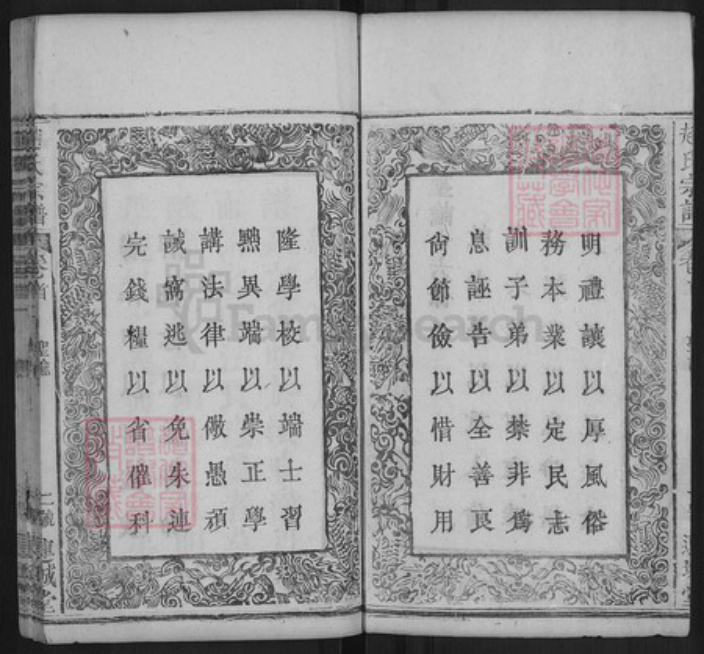 明禮讓以厚風俗
務本業以定民志
訓子弟以禁非爲
息誣告以全善良
尙節儉以惜財用
隆學校以端士習
黜異端以崇正學
講法律以儆愚頑
誡窩逃以免朱連
完錢糧以省催科
趙氏宗譜
卷首
FamilySearch